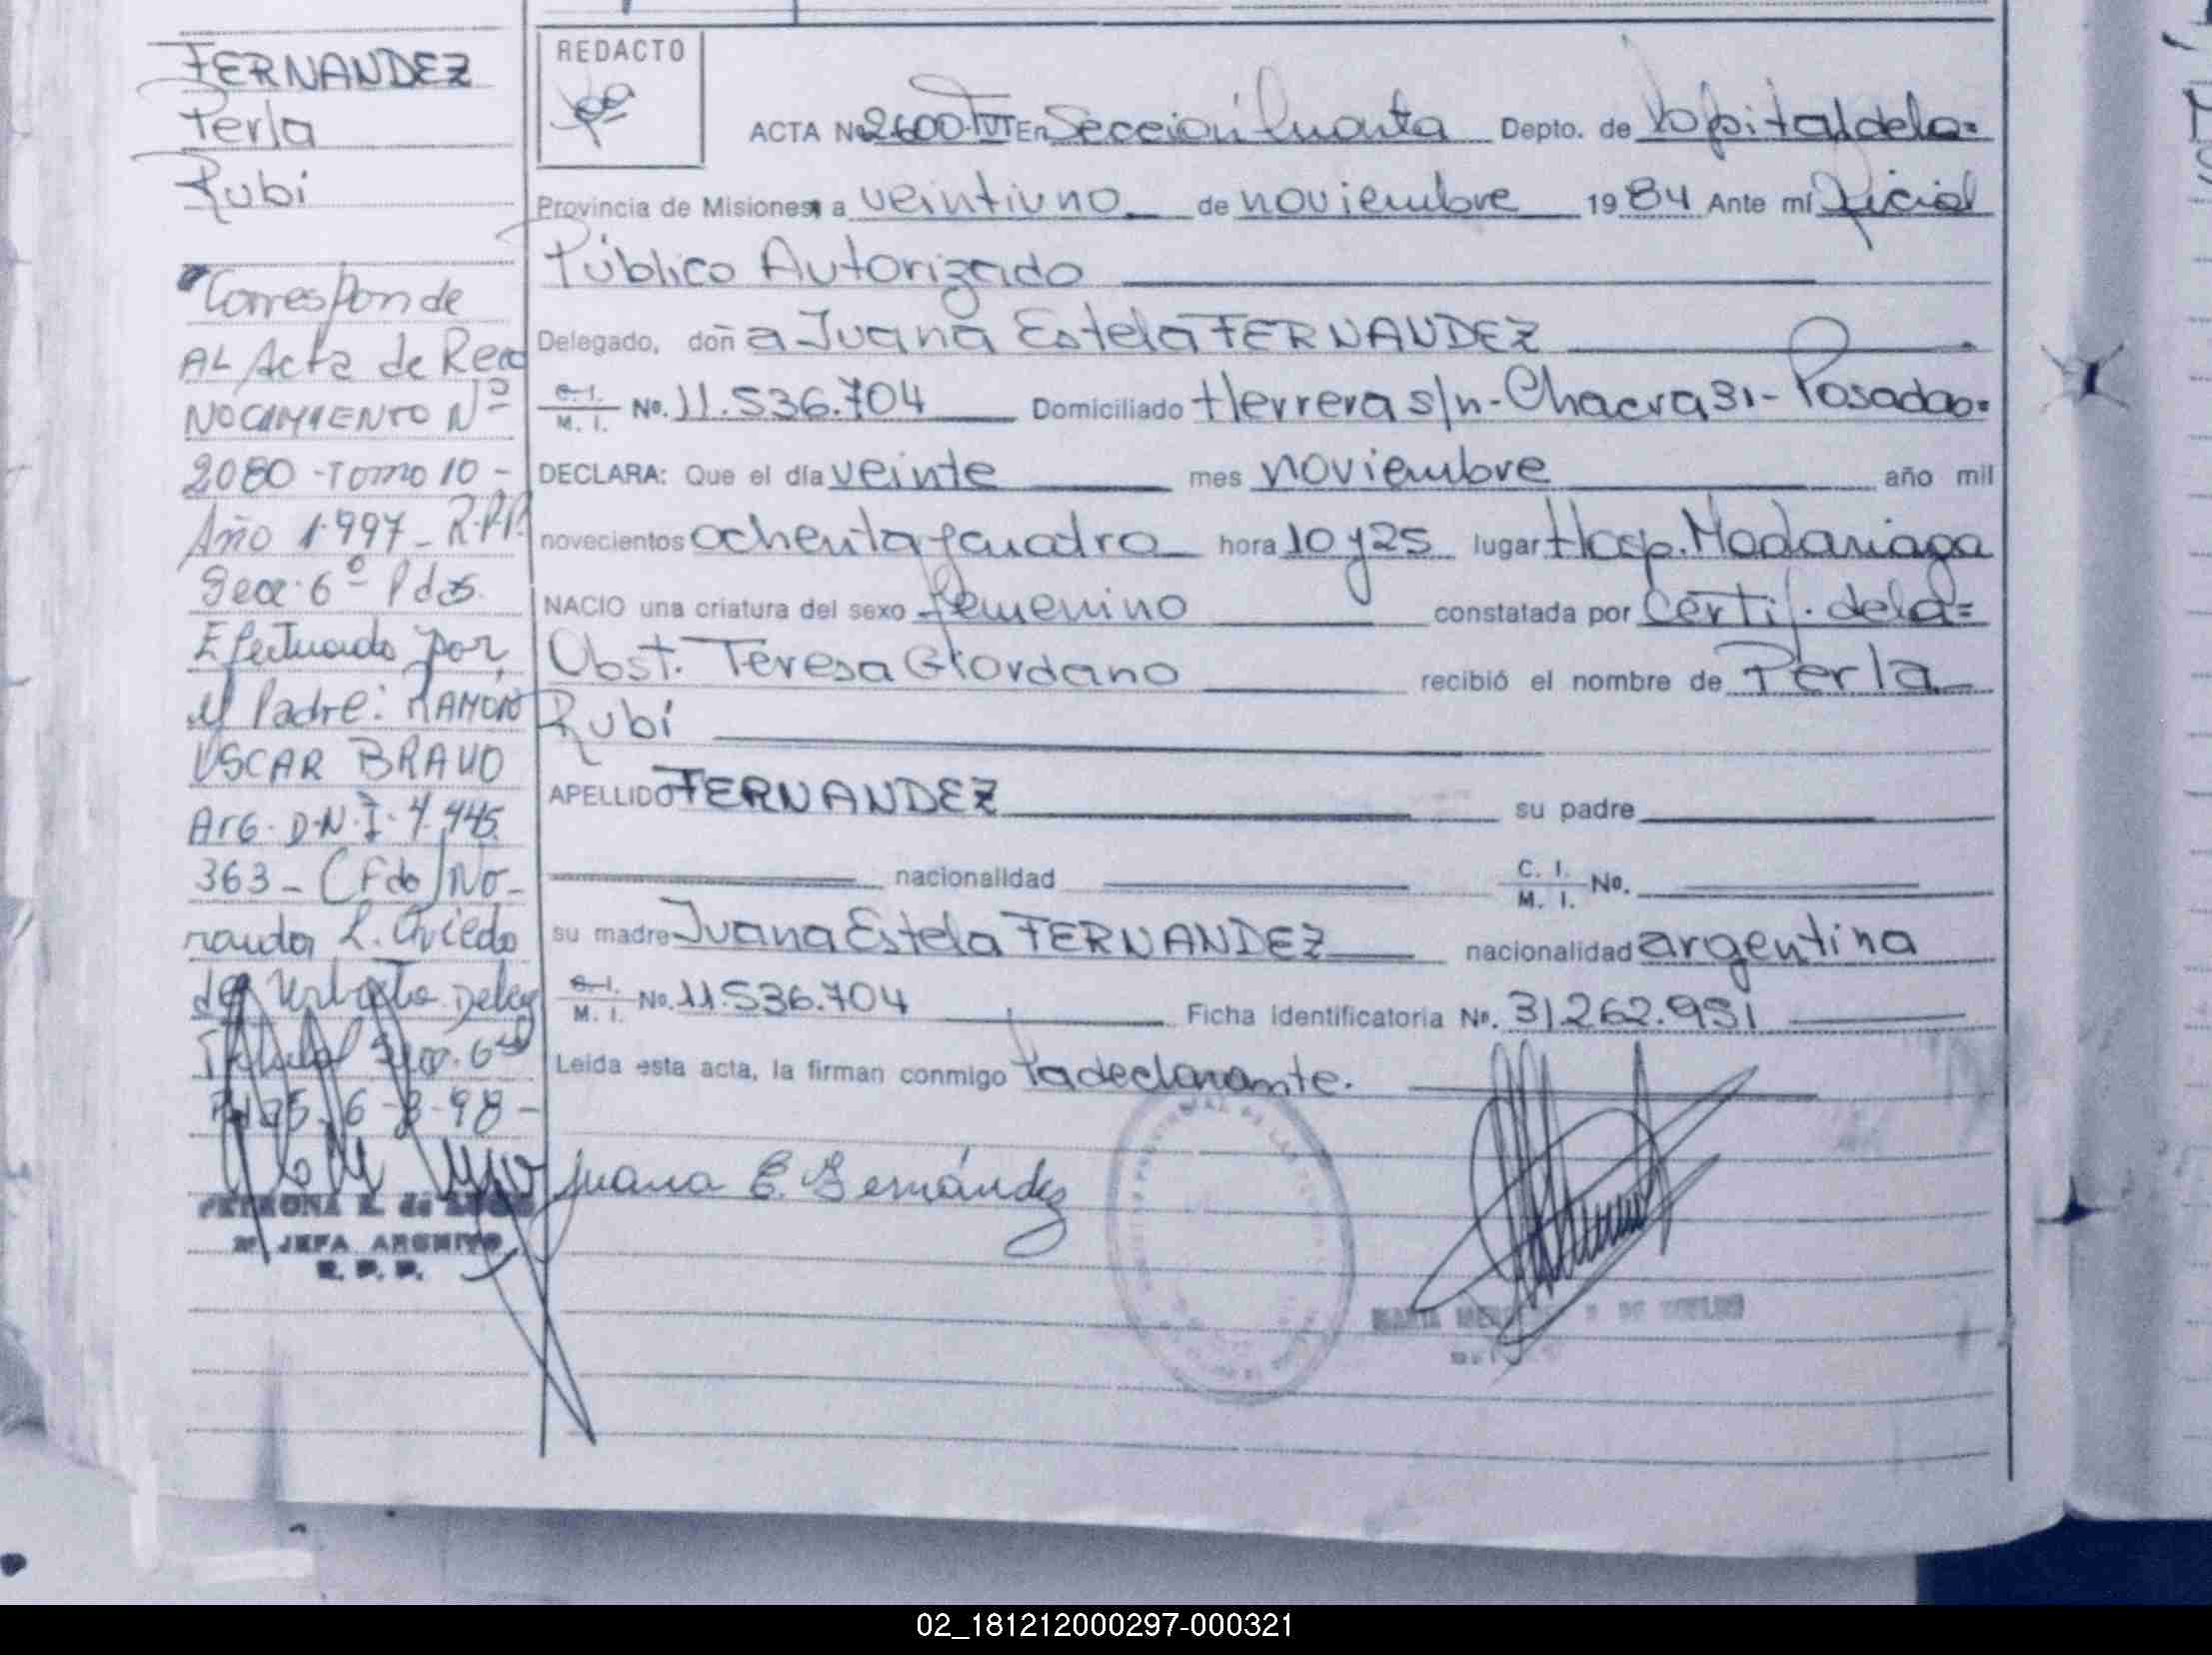 FERNANDEZ
Perla
Rubí
Corresponde
AL Acta de Reco
NOCIMIENTO Nº
2080 - Tomo 10 -
Año 1.997 - R.P.P.
Secc. 6º Pdas.
Efectuado por
el Padre: RAMON
OSCAR BRAVO
Arg. D.N.I. 7.445.
363 - (Fdo) No-
L. Oviedo
de Deleg
Titular Secc. 6ta
Pdas. 6-8-98-
PETRONA E. de
2º JEFA ARCHIVO
R. P. P.
REDACTO
ACTA Nº 2600-TVII En Sección Cuarta Depto. de Capital de la=
Provincia de Misiones, a veintiuno de noviembre 19 84 Ante mí Oficial
Público Autorizado
Delegado, doñ a Juana Estela FERNANDEZ
C. I. M. I. No. 11.536.704 Domiciliado Herrera s/n - Chacra 31 - Posadas=
DECLARA: Que el día veinte mes noviembre año mil
novecientos ochenta y cuatro hora 10 y 25 lugar Hosp. Madariaga
NACIO una criatura del sexo femenino constatada por Certif. de la=
Obst. Teresa Giordano recibió el nombre de Perla
Rubí
APELLIDO FERNANDEZ su padre
nacionalidad C. I. M. I. No.
su madre Juana Estela FERNANDEZ nacionalidad argentina
C. I. M. I. No. 11.536.704 Ficha identificatoria Nº. 31.262.951
Leida esta acta, la firman conmigo la declarante.
Juana E. Fernández
02_181212000297-000321